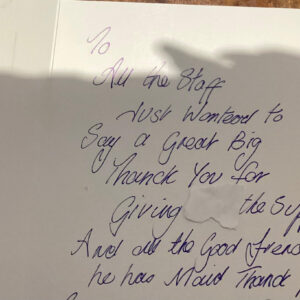 To
All the Staff
Just Wanted to
Say a Great Big
Thanck You for
Giving the Su
And all the Good friend
he has Maid Thanck